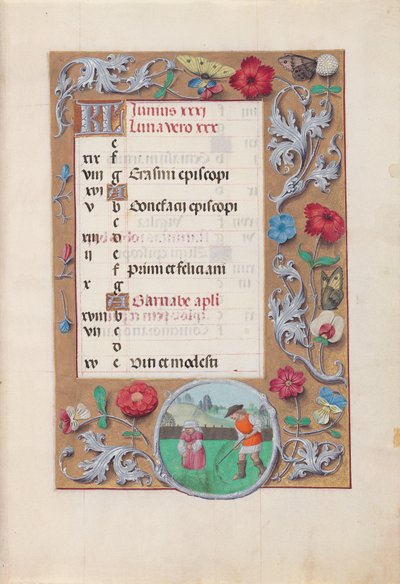 KL Iunius xxxi
Luna vero xxx
e
xix f
viii g Erasmi episcopi
xvi A
v b Bonefacii episcopi
c
xiii d
ii e
f Primi et feliciani
x g
A Barnabe apli
xviii b
vii c
d
xv e Viti et modesti